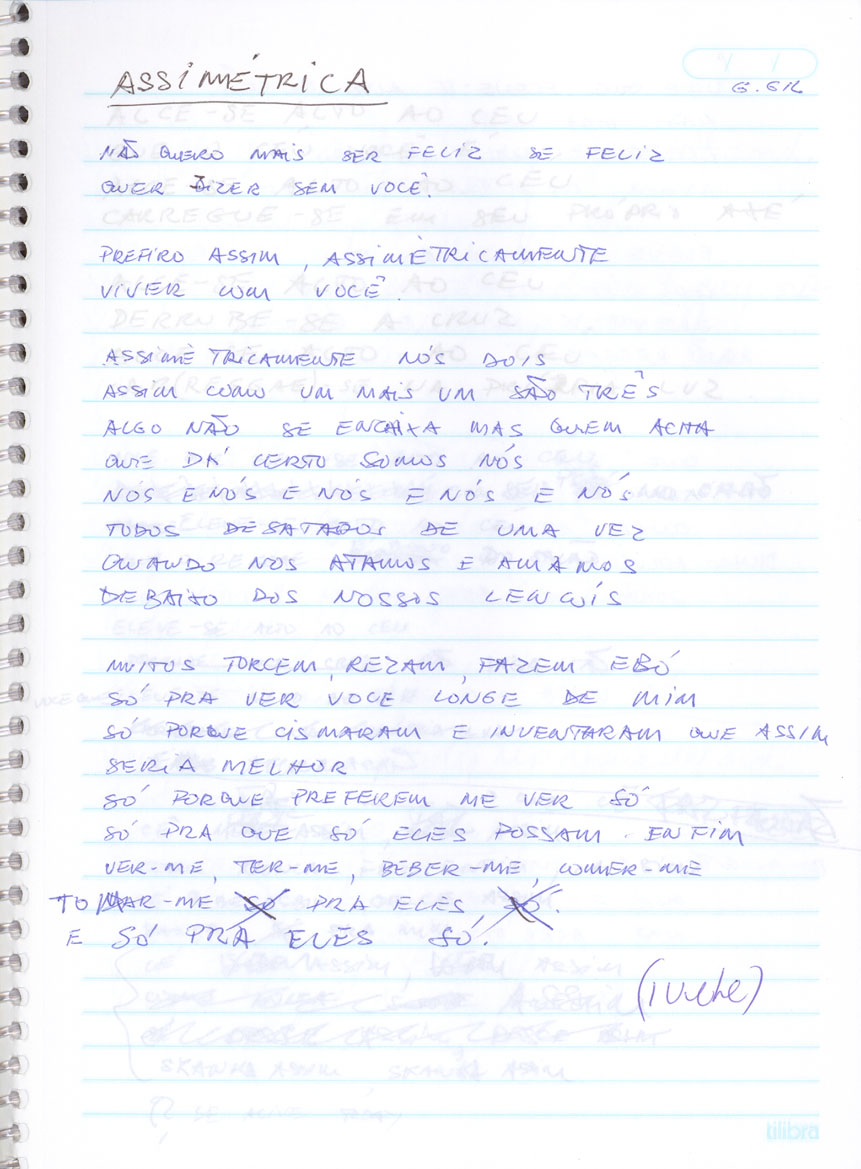 ASSIMÉTRICA
G. GIL
NÃO QUERO MAIS SER FELIZ SE FELIZ
QUER DIZER SEM VOCÊ.
PREFIRO ASSIM, ASSIMÉTRICAMENTE
VIVER COM VOCÊ.
ASSIMÉTRICAMENTE NÓS DOIS
ASSIM COMO UM MAIS UM SÃO TRÊS
ALGO NÃO SE ENCAIXA MAS QUEM ACHA
QUE DÁ CERTO SOMOS NÓS
NÓS E NÓS E NÓS E NÓS E NÓS
TODOS DESATADOS DE UMA VEZ
QUANDO NOS ATAMOS E AMAMOS
DEBAIXO DOS NOSSOS LENCUÍS
MUITOS TORCEM, REZAM, FAZEM EBÓ
SÓ PRA VER VOCE LONGE DE MIM
SÓ PORQUE CISMARAM E INVENTARAM QUE ASSIM
SERIA MELHOR
SÓ PORQUE PREFEREM ME VER SÓ
SÓ PRA QUE SÓ ELES POSSAM ENFIM
VER-ME, TER-ME, BEBER-ME, COMER-ME
TOMAR-ME SÓ PRA ELES, SÓ.
E SÓ PRA ELES SÓ.
tilibra